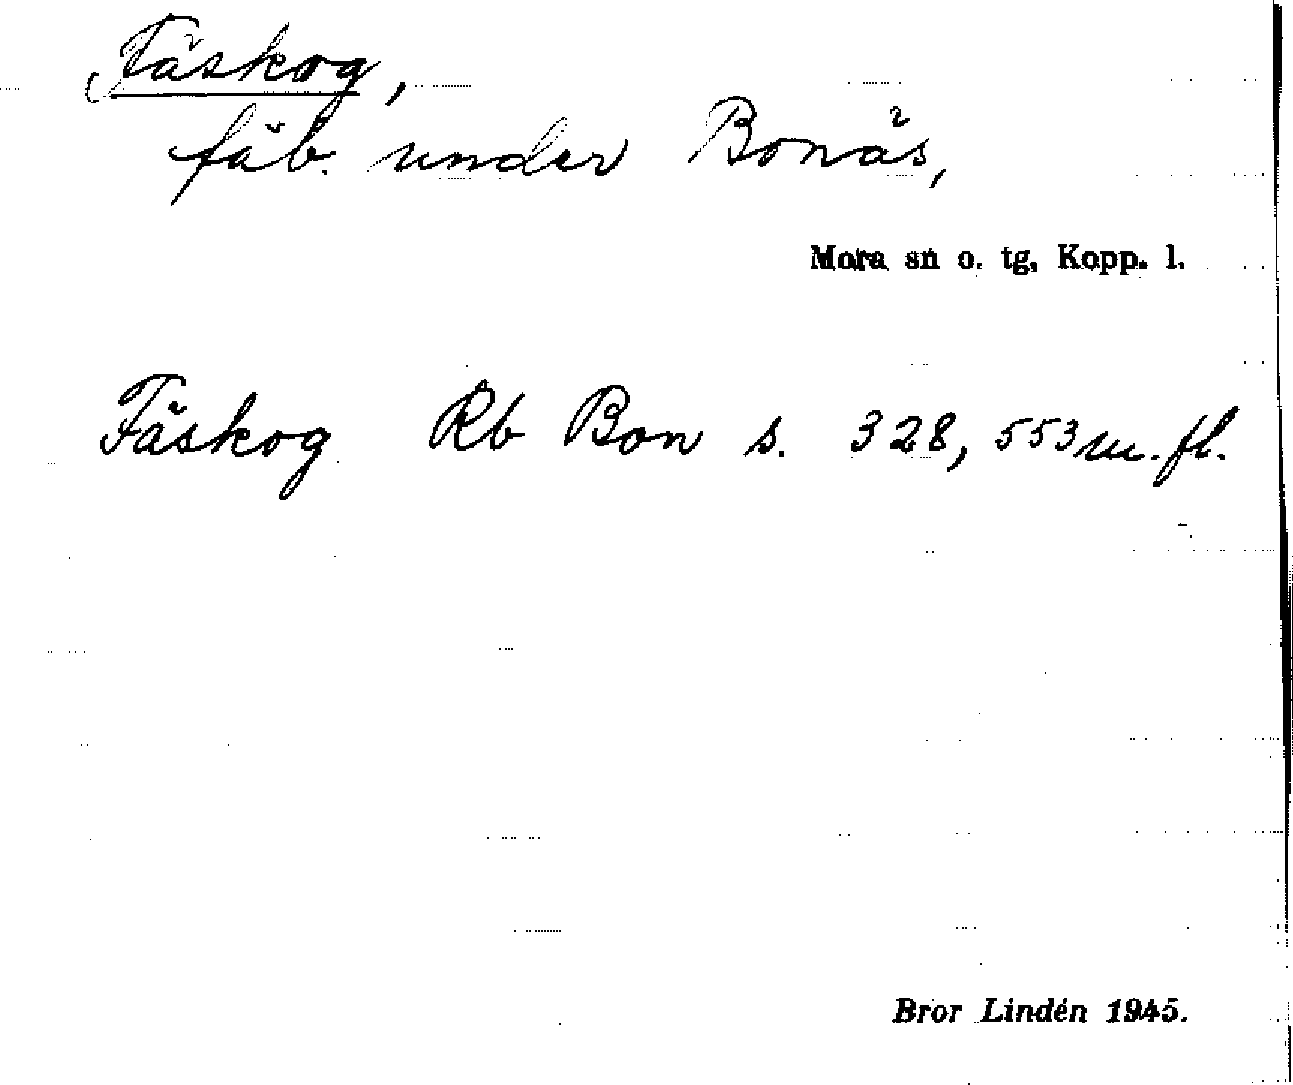 Fäskog,
fäb. under Bonäs,
Mora sn o. tg, Kopp. l.
Fäskog Rb Bon s. 328, 553 m. fl.
Bror Lindén 1945.